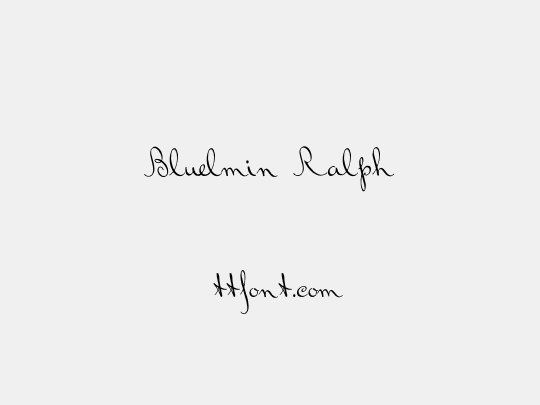 Bluelmin Ralph
ttfont.com